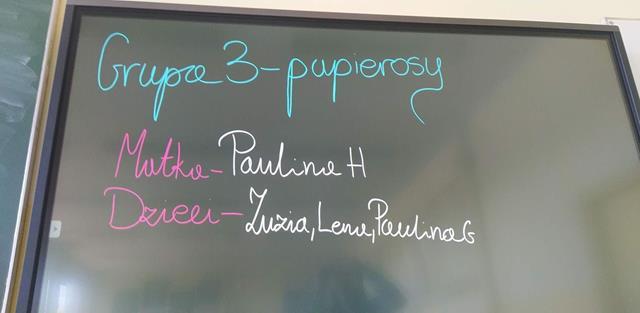 Grupa 3-papierosy
Matka-Paulina H
Dzieci-Zuzia, Lena, Paulina G